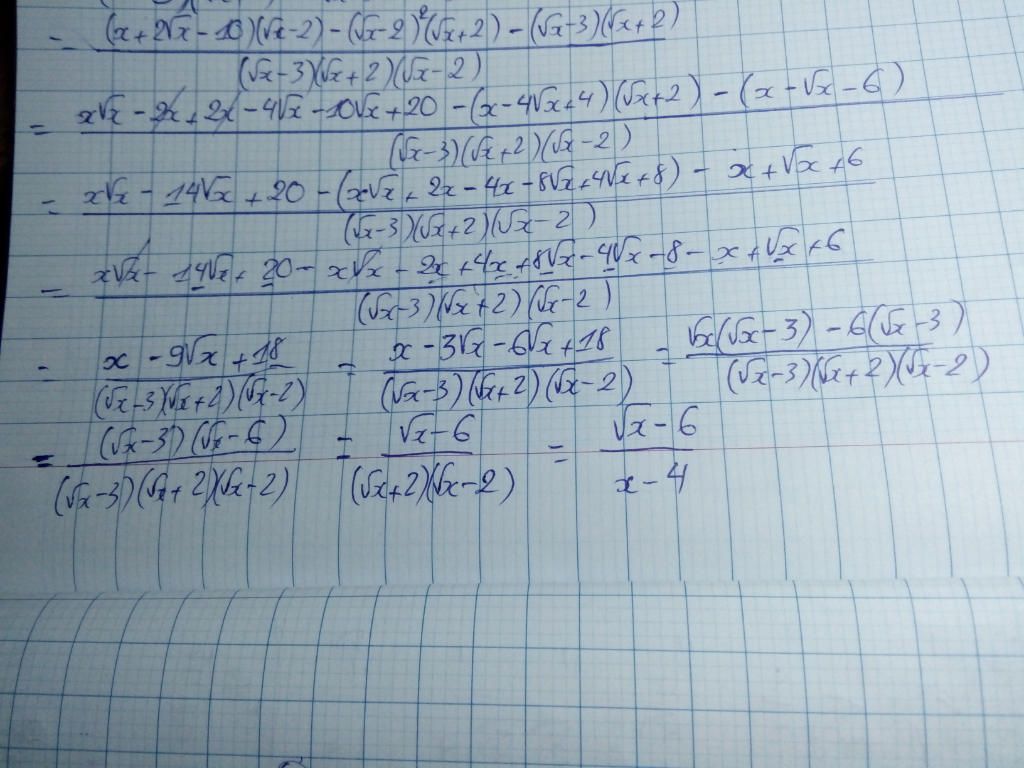 = ((x+2√x-10)(√x-2)-(√x-2)²(√x+2)-(√x-3)(√x+2))/((√x-3)(√x+2)(√x-2))
= (x√x-2x+2x-4√x-10√x+20-(x-4√x+4)(√x+2)-(x-√x-6))/((√x-3)(√x+2)(√x-2))
= (x√x-14√x+20-(x√x+2x-4x-8√x+4√x+8)-x+√x+6)/((√x-3)(√x+2)(√x-2))
= (x√x-14√x+20-x√x-2x+4x+8√x-4√x-8-x+√x+6)/((√x-3)(√x+2)(√x-2))
= (x-9√x+18)/((√x-3)(√x+2)(√x-2)) = (x-3√x-6√x+18)/((√x-3)(√x+2)(√x-2)) = (√x(√x-3)-6(√x-3))/((√x-3)(√x+2)(√x-2))
= ((√x-3)(√x-6))/((√x-3)(√x+2)(√x-2)) = (√x-6)/((√x+2)(√x-2)) = (√x-6)/(x-4)